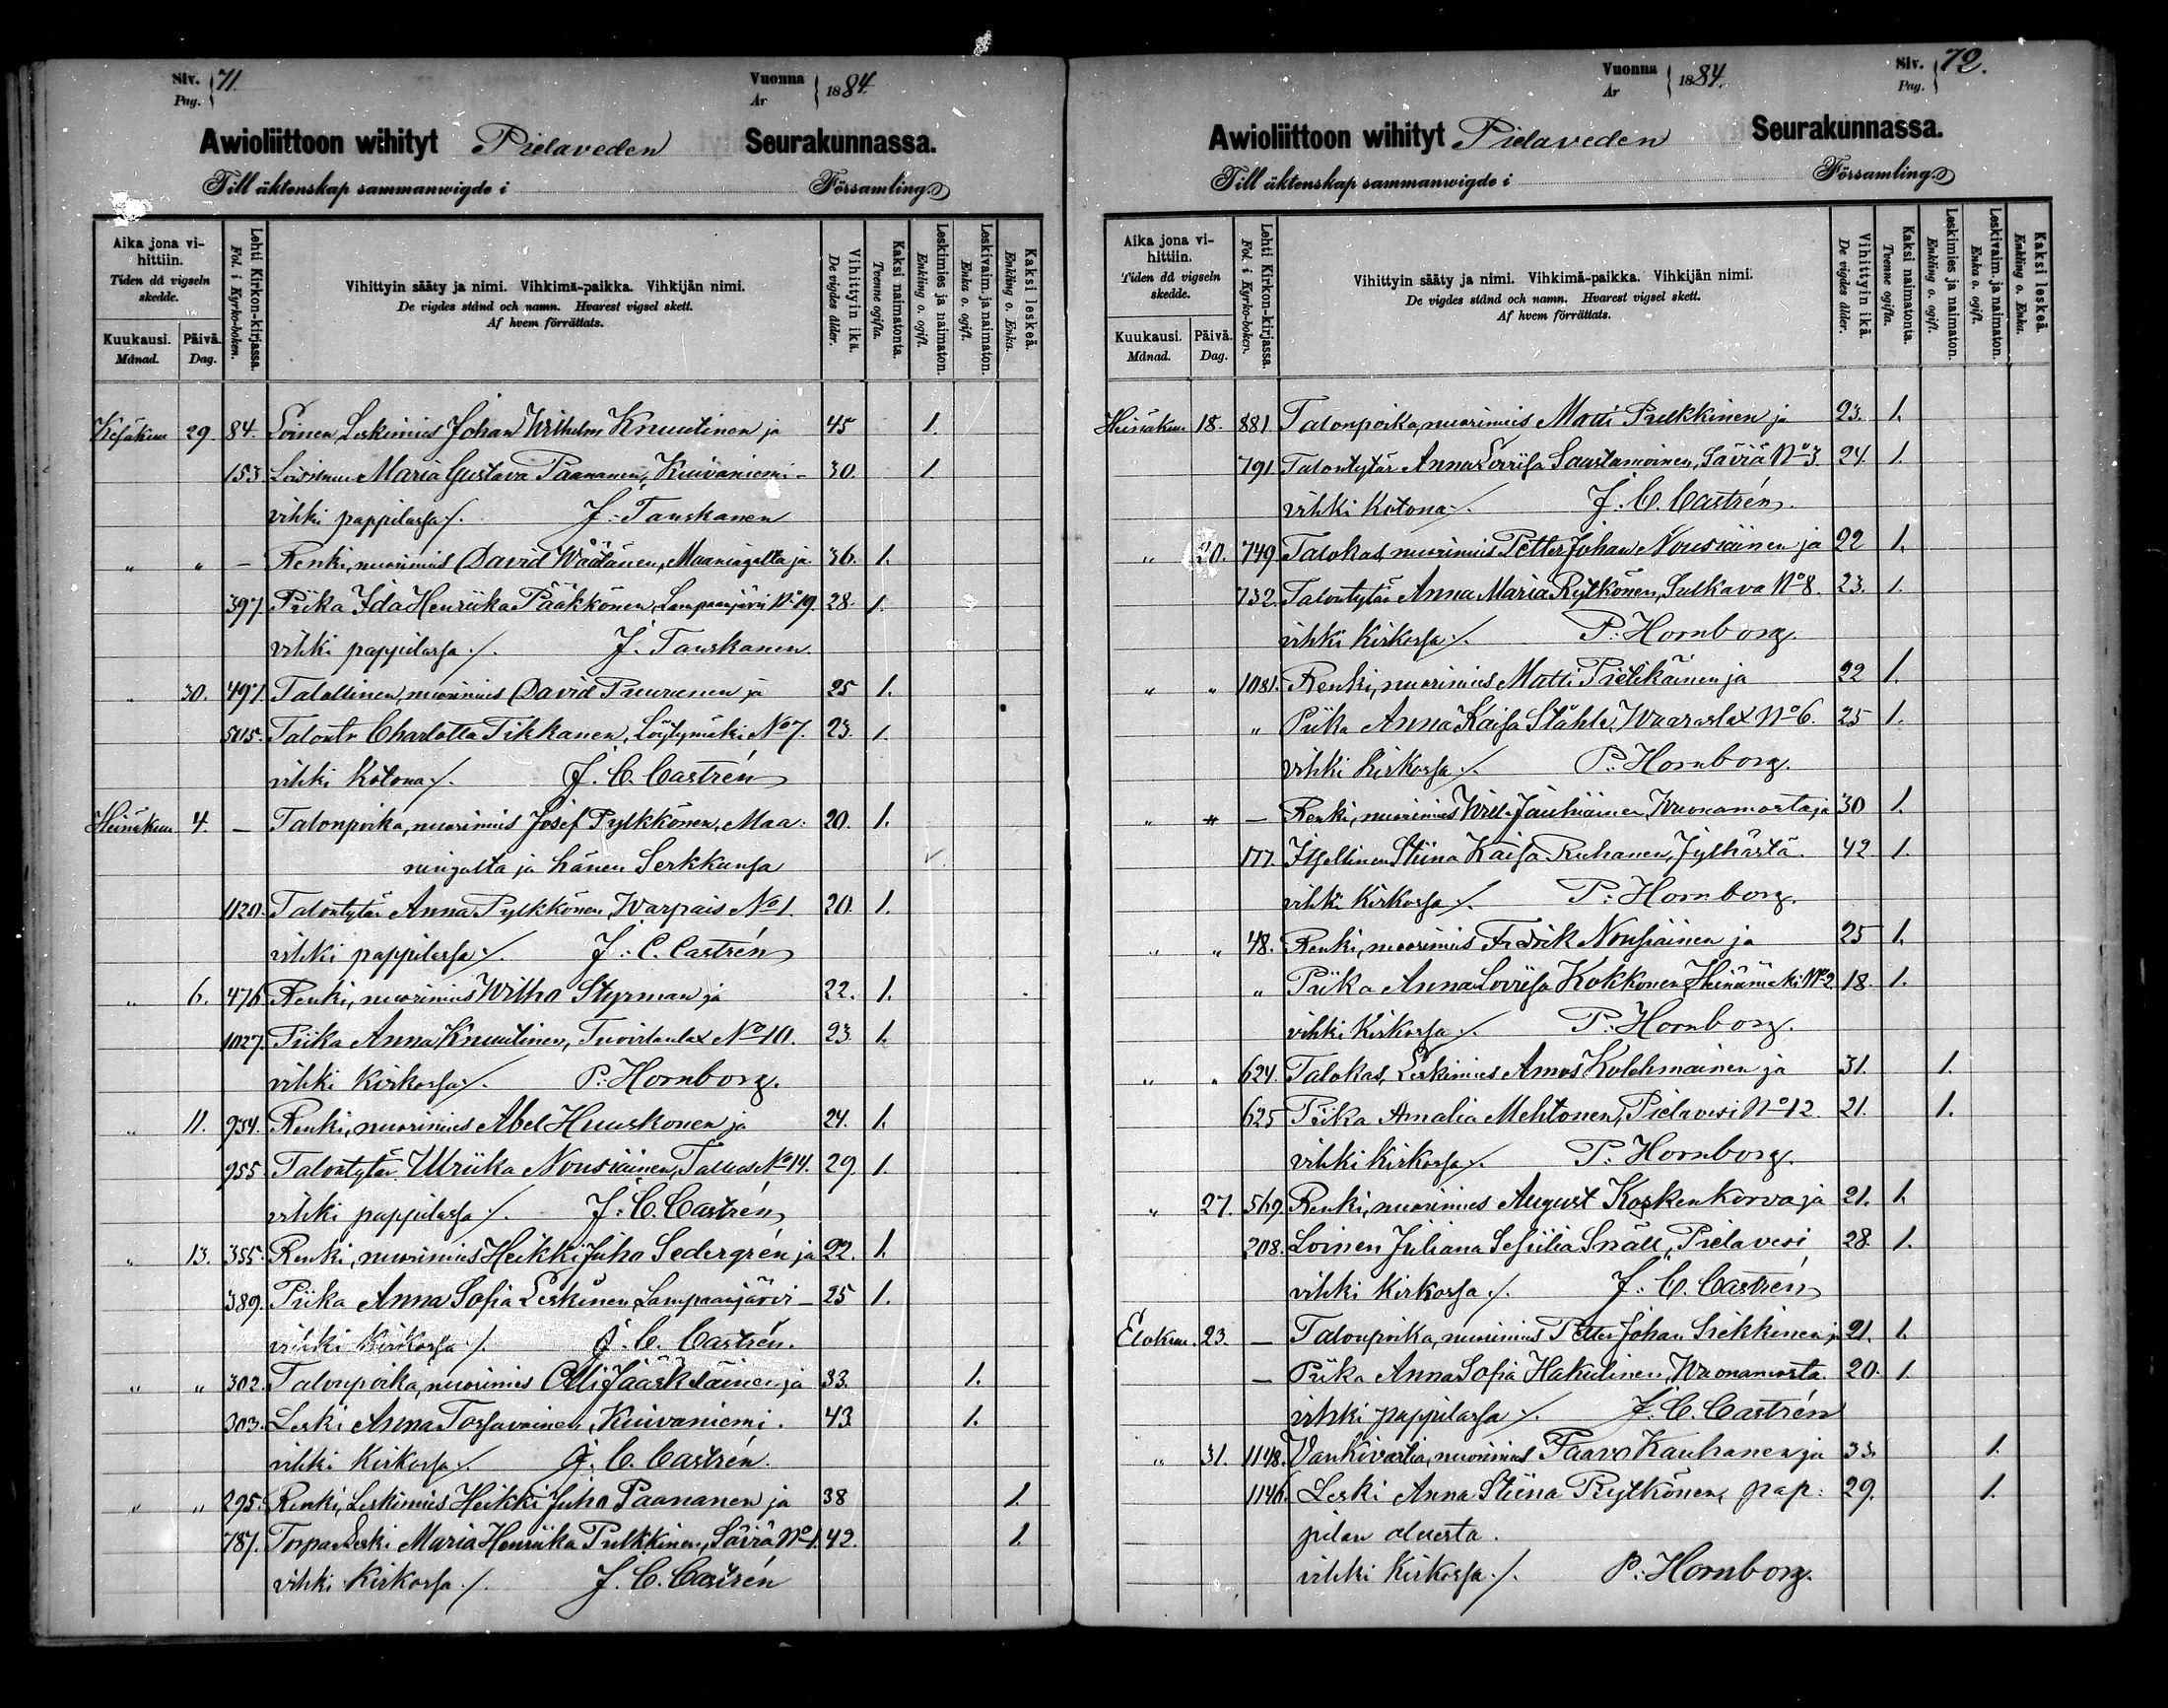 Siv. Pag. 71.
Vuonna År 1884.
Awioliittoon wihityt Pielaveden Seurakunnassa.
Till äktenskap sammanwigde i Församling.
Aika jona vihittiin. Tiden då vigseln skedde.
Kuukausi. Månad. Päivä. Dag.
Lehti Kirkon-kirjassa. Fol. i Kyrko-boken.
Vihittyin sääty ja nimi. Vihkimä-paikka. Vihkijän nimi.
De vigdes stånd och namn. Hvarest vigsel skett.
Af hvem förrättats.
Vihittyin ikä. De vigdes ålder.
Kaksi naimatonta. Tvenne ogifta.
Leskimies ja naimaton. Enkling o. ogift.
Leskivaim. ja naimaton. Enka o. ogift.
Kaksi leskeä. Enkling o. Enka.
Kesäkuu 29. 84. Loinen, Leskimies Johan Wilhelm Knuutinen ja 45 1.
153. Maria Gustava Paananen, Kuivaniemi 30. 1
vihki pappilassa ./. J. Tauskanen
" " — Renki, nuorimies David Wäätänen, Maaningalta ja 36. 1.
397. Piika Ida Henriika Pääkkönen, Lampaanjärvi No 19. 28. 1.
vihki pappilassa ./. J. Tauskanen
" 30. 497. Talollinen, nuorimies David Puurunen ja 25 1.
Talontr Charlotta Tikkanen, Löytymäki No 7. 23. 1.
vihki Kotona ./. J. C. Castrén
Heinäkuu 4. — Talonpoika, nuorimies Josef Pylkkönen, Maa- 20. 1.
ningalta ja hänen Serkkunsa
1120. Talontytär Anna Pylkkönen, Warpais No 1. 20. 1.
vihki pappilassa ./. J. C. Castrén
" 6. 476. Renki, nuorimies Wilho Styrman ja 22. 1.
1027. Piika Anna Knuutinen, Tuovilanlax No 10. 23. 1.
vihki Kirkossa ./. P. Hornborg.
" 11. 934. Renki, nuorimies Abel Huuskonen ja 24. 1.
955. Talontytär Ulriika Nousiainen, Tallus No 14. 29. 1.
vihki pappilassa ./. J. C. Castrén
" 13. 355. Renki, nuorimies Heikki Juho Sedergrén ja 22. 1.
389. Piika Anna Sofia Leskinen, Lampaanjärvi — 25 1.
vihki Kirkossa ./. J. C. Castrén.
" " 302. Talonpoika, nuorimies Olli Jääskeläinen ja 33. 1.
303. Leski Anna Tossavainen, Kuivaniemi. 43 1.
vihki Kirkossa ./. J. C. Castrén.
" " 295. Renki, Leskimies Heikki Juho Paananen ja 38 1.
787. Torpanleski Maria Henriika Pulkkinen, Säviä No 1. 42. 1.
vihki Kirkossa ./. J. C. Castrén
Siv. Pag. 72.
Vuonna År 1884.
Awioliittoon wihityt Pielaveden Seurakunnassa.
Till äktenskap sammanwigde i Församling.
Aika jona vihittiin. Tiden då vigseln skedde.
Kuukausi. Månad. Päivä. Dag.
Lehti Kirkon-kirjassa. Fol. i Kyrko-boken.
Vihittyin sääty ja nimi. Vihkimä-paikka. Vihkijän nimi.
De vigdes stånd och namn. Hvarest vigsel skett.
Af hvem förrättats.
Vihittyin ikä. De vigdes ålder.
Kaksi naimatonta. Tvenne ogifta.
Leskimies ja naimaton. Enkling o. ogift.
Leskivaim. ja naimaton. Enka o. ogift.
Kaksi leskeä. Enkling o. Enka.
Heinäkuu. 18. 881. Talonpoika, nuorimies Matti Pulkkinen ja 23. 1.
791 Talontytär Anna Loviisa Saastamoinen, Säviä No 3. 24. 1.
vihki Kotona ./. J. C. Castrén.
" 20. 749. Talokas, nuorimies Petter Johan Nousiainen ja 22 1.
732. Talontytär Anna Maria Rytkönen, Sulkava No 8. 23. 1.
vihki Kirkossa ./. P. Hornborg.
" " 1081. Renki, nuorimies Matti Pietikäinen ja 22 1.
" Piika Anna Kaisa Ståhle, Waaraslax No 6. 25 1.
vihki Kirkossa ./. P. Hornborg.
" " — Renki, nuorimies Wille Jauhiainen, Wuonamosta ja 30 1.
177. Itsellinen Stiina Kaisa Ruhanen, Jylhästä. 42 1.
vihki Kirkossa ./. P. Hornborg.
" " 48. Renki, nuorimies Fredrik Nousiainen ja 25 1.
" Piika Anna Loviisa Kokkonen, Heinämäki No 2. 18. 1.
vihki Kirkossa ./. P. Hornborg.
" " 624. Talokas, Leskimies Amos Kolehmainen ja 31. 1.
625 Piika Amalia Mehtonen, Pielavesi No 12. 21. 1.
vihki Kirkossa ./. P. Hornborg.
" 27. 569. Renki, nuorimies August Koskenkorva ja 21. 1.
208. Loinen Juliana Sesiilia Snäll, Pielavesi 28. 1.
vihki Kirkossa ./. J. C. Castrén
Elokuu. 23. — Talonpoika, nuorimies Petter Johan Siekkinen ja 21. 1.
— Piika Anna Sofia Hakulinen, Wuonamosta. 20. 1.
vihki pappilassa ./. J. C. Castrén
" 31. 1148. Vankivartia, nuorimies Paavo Kauhanen ja 33. 1.
1146. Leski Anna Stiina Rytkönen, pap- 29. 1.
pilan alueesta.
vihki Kirkossa ./. P. Hornborg.